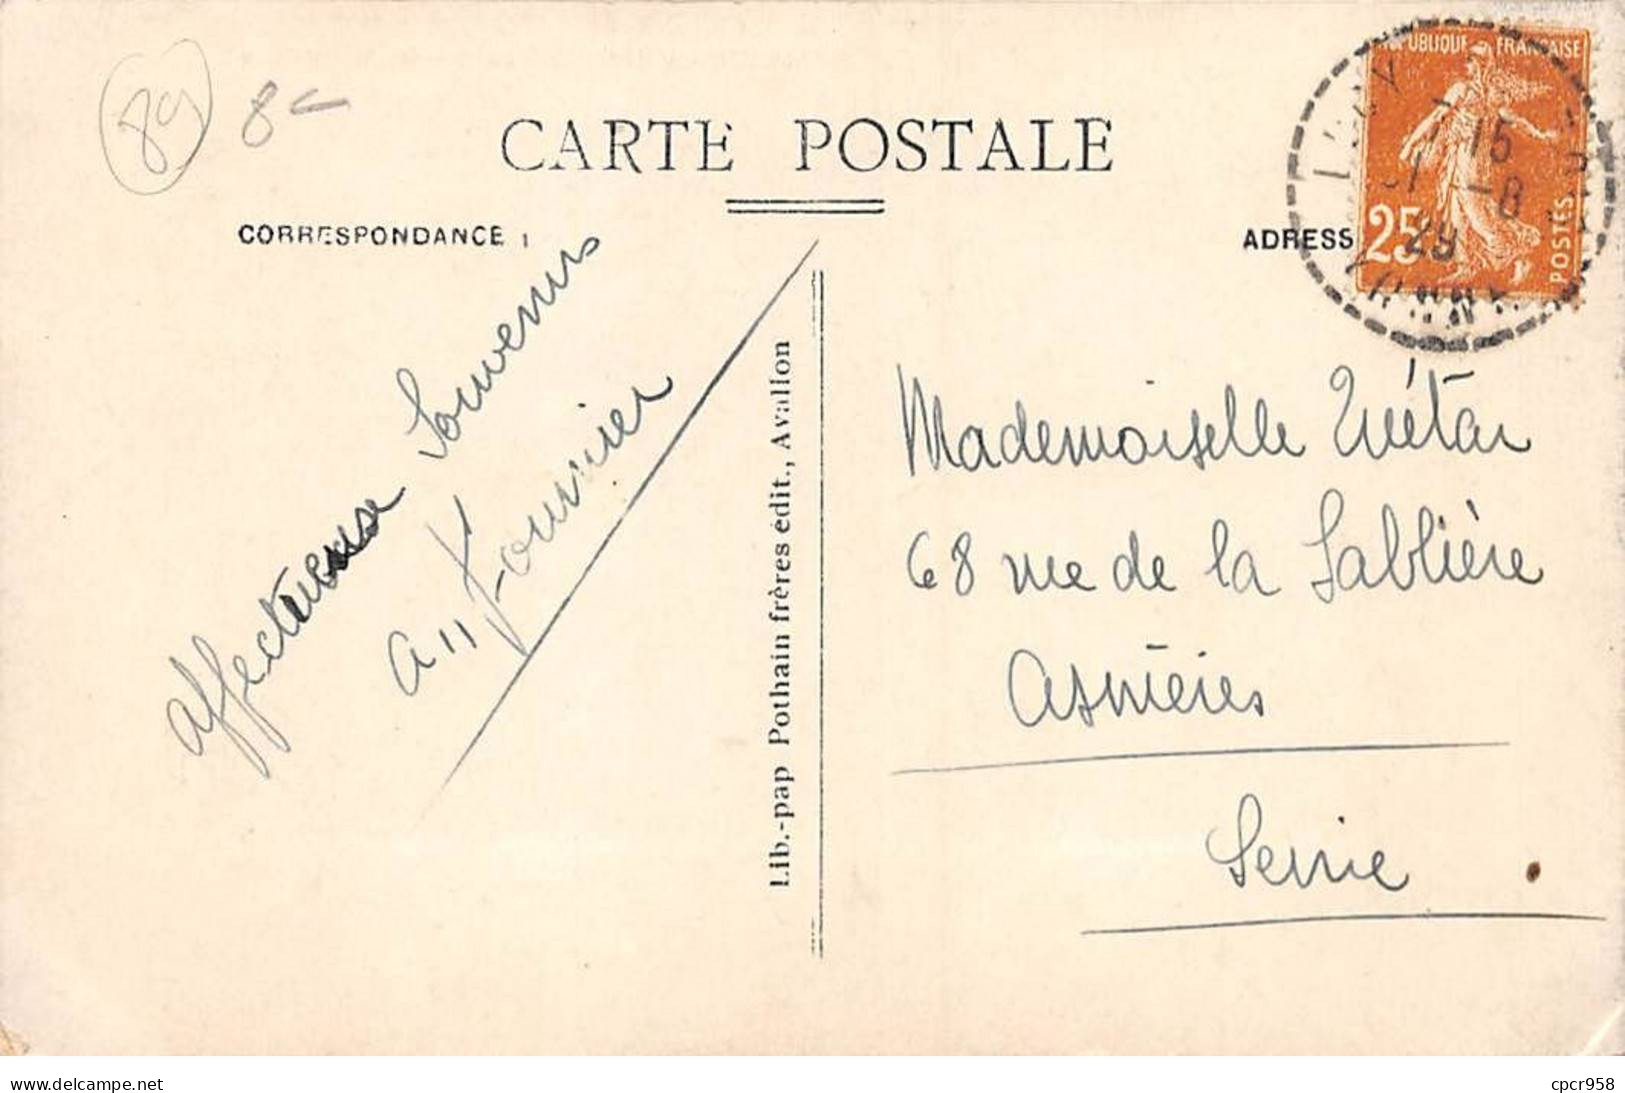 89 8
CARTE POSTALE
CORRESPONDANCE
ADRESS
RÉPUBLIQUE FRANÇAISE
25
POSTES
15
-8
29
affectueuse Souvenirs
a " Fournier
Lib.-pap Pothain frères édit., Avallon
Mademoiselle
68 rue de la Sablière
Asnières
Seine
cpcr958